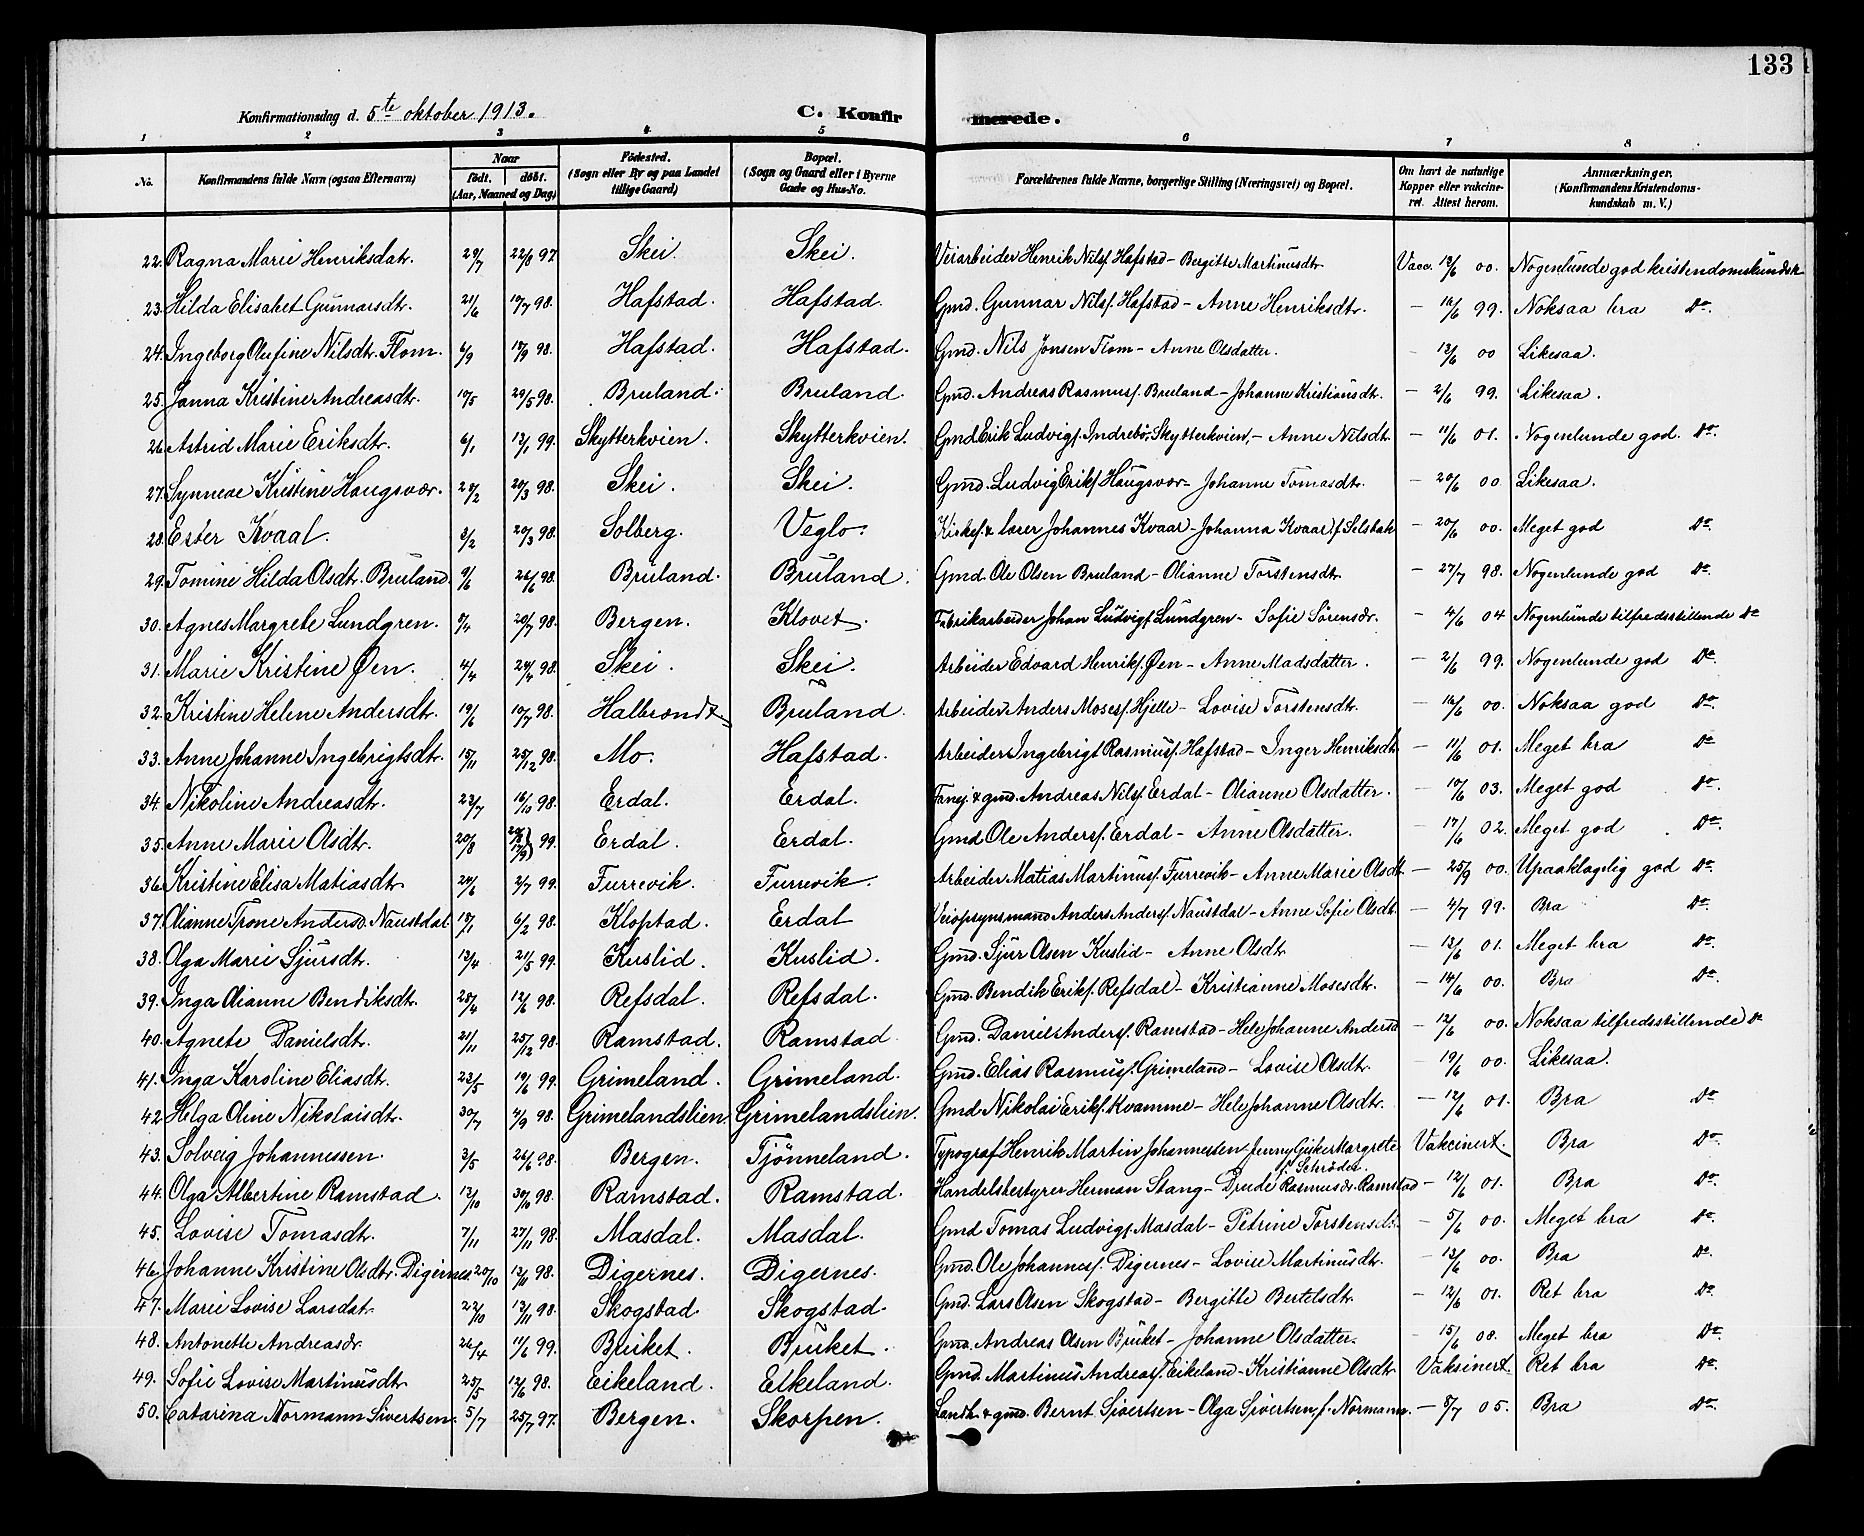 133
Konfirmationsdag d. 5te oktober 1913.
C. Konfirmerede.
1 2 3 4 5 6 7 8
No. Konfirmandens fulde Navn (ogsaa Efternavn) Naar født. døbt. (Aar, Maaned og Dag) Fødested. (Sogn eller By og paa Landet tillige Gaard) Bopæl. (Sogn og Gaard eller i Byerne Gade og Hus-No. Forældrenes fulde Navne, borgerlige Stilling (Næringsvei) og Bopæl. Om havt de naturlige Kopper eller vakcineret. Attest herom. Anmærkninger. (Konfirmandens Kristendomskundskab m. V.)
22. Ragna Marie Henriksdatr. 29/7 22/8 97 Skei. Skei. Veiarbeider Henrik Nilsf Hafstad - Bergitte Martinusdtr Vacc. 12/6 00. Nogenlunde god kristendomskundsk
23. Hilda Elisabet Gunnarsdtr. 21/6 17/7 98. Hafstad. Hafstad. Gmd. Gunnar Nilsf. Hafstad - Anne Henriksdtr. - 16/6 99. Noksaa bra Do.
24. Ingeborg Olufine Nilsdtr. Flom. 6/9 18/9 98. Hafstad. Hafstad. Gmd. Nils Jonsen Flom - Anne Olsdatter. - 13/6 00 Likesaa.
25. Janna Kristine Andreasdtr. 10/5 29/5 98. Bruland. Bruland. Gmd. Andreas Rasmusf. Bruland - Johanne Kristiansdtr. - 2/6 99. Likesaa.
26. Astrid Marie Eriksdtr. 6/1 13/1 99. Skytterkvien. Skytterkvien. Gmd Erik Ludvigf. Indrebø, Skytterkvien, - Anne Nilsdtr. - 11/6 01. Nogenlunde god. Do.
27. Synneve Kristine Haugsvær. 28/2 20/3 98. Skei. Skei. Gmd. Ludvig Erikf Haugsvær - Johanne Tomasdtr. - 20/6 00 Likesaa.
28. Ester Kvaal. 8/2 20/3 98. Solberg. Veglo. Kirkes. & lærer Johannes Kvaal - Johanna Kvaal f. Selstak - 20/6 00. Meget god Do
29. Tomine Hilda Olsdtr. Bruland. 9/6 26/6 98. Bruland. Bruland. Gmd. Ole Olsen Bruland - Olianne Torstensdtr. - 27/7 98. Nogenlunde god Do.
30. Agnes Margrete Lundgren. 8/4 20/7 98. Bergen. Klovet. Fabrikarbeider Johan Ludvigf Lundgren - Sofie Sørensdr. - 4/6 04 Nogenlunde tilfredsstillende Do
31. Marie Kristine Øen. 4/4 24/4 98. Skei. Skei. Arbeider Edvard Henrikf. Øen - Anne Madsdatter. - 2/6 99. Nogenlunde god Do
32. Kristine Helene Andersdtr. 19/6 10/7 98. Halbrendt Bruland. Arbeider Anders Mosesf. Hjelle - Lovise Torstensdtr. - 16/6 00. Noksaa god Do.
33. Anne Johanne Ingebrigtsdtr. 15/11 25/12 98. Mo. Hafstad. Arbeider Ingebrigt Rasmusf. Hafstad - Inger Henriksdtr - 11/6 01. Meget bra Do
34. Nikoline Andreasdtr. 22/7 16/10 98. Erdal. Erdal. Fanej. & gmd. Andreas Nilsf. Erdal - Olianne Olsdatter. - 10/6 03. Meget god Do.
35. Anne Marie Olsdtr. 20/8 99. Erdal. Erdal. Gmd Ole Andersf. Erdal - Anne Olsdatter. - 17/6 02. Meget god Do.
36. Kristine Elisa Matiasdtr 24/6 2/7 99. Furrevik. Furrevik. Arbeider Matias Martinusf. Furrevik - Anne Marie Olsdt - 25/9 00. Upaaklagelig god Do.
37. Olianne Trone Andersd. Naustdal 18/1 6/2 98. Klopstad. Erdal Veiopsynsmand Anders Andersf. Naustdal - Anne Sofie Olsdt. - 4/7 99. Bra Do.
38. Olga Marie Sjursdtr. 13/4 21/5 99. Kuslid. Kuslid. Gmd. Sjur Olsen Kuslid - Anne Olsdtr - 13/6 01. Meget bra Do
39. Inga Olianne Bendiksdtr. 25/4 12/6 98. Refsdal. Refsdal. Gmd. Bendik Erikf. Refsdal - Kristianne Mosesdtr. - 14/6 00. Bra Do.
40. Agnete Danielsdtr. 21/11 25/12 98. Ramstad. Ramstad. Gmd. Daniel Andersf. Ramstad - Hele Johanne Andersd - 12/6 00. Noksaa tilfredsstillende Do
41. Inga Karoline Eliasdtr. 23/5 19/6 99. Grimeland. Grimeland. Gmd. Elias Rasmusf. Grimeland - Lovise Olsdtr. - 19/6 00. Likesaa.
42. Helga Oline Nikolaisdtr. 30/7 4/9 98. Grimelandslien. Grimelandslien. Gmd. Nikolai Erikf. Kvamme - Hele Johanne Olsdtr. - 12/6 01. Bra Do
43. Solveig Johannessen. 3/5 26/6 98. Bergen. Tjønneland. Typograf Henrik Martin Johannessen Jenny Margrete f. Schrøder. Vakcinert. Bra Do.
44. Olga Albertine Ramstad. 12/10 30/10 98. Ramstad. Ramstad. Handelsbestyrer Herman Stang - Drude Rasmusdr. Ramstad - 12/6 01. Bra Do.
45. Lovise Tomasdtr. 7/11 27/11 98. Masdal. Masdal. Gmd Tomas Ludvigf. Masdal - Petrine Torstensdt. - 5/6 00. Meget bra Do.
46. Johanne Kristine Olsdtr. Digernes 20/10 13/11 98. Digernes. Digernes. Gmd. Ole Johannesf. Digernes - Lovise Martinusdtr. - 13/6 00. Bra Do.
47. Marie Lovise Larsdat. 22/10 13/11 98. Skogstad Skogstad. Gmd. Lars Olsen Skogstad - Bergitte Bertelsdtr. - 12/6 01. Ret bra Do.
48. Antonette Andreasdr. 26/4 11/6 99. Bruket. Bruket. Gmd. Andreas Olsen Bruket - Johanne Olsdatter. - 15/6 08. Meget bra Do
49. Sofie Lovise Martinusdtr 25/5 12/6 98. Eikeland. Eikeland. Gmd. Martinus Andreasf. Eikeland - Kristianne Olsdtr Vaksinert. Ret bra Do.
50. Catarina Normann Sivertsen. 5/7 25/7 97. Bergen. Skorpen. Landh. & gmd. Bernt Sivertsen - Olga Sivertsen, f. Normann. - 8/7 05. Bra Do.